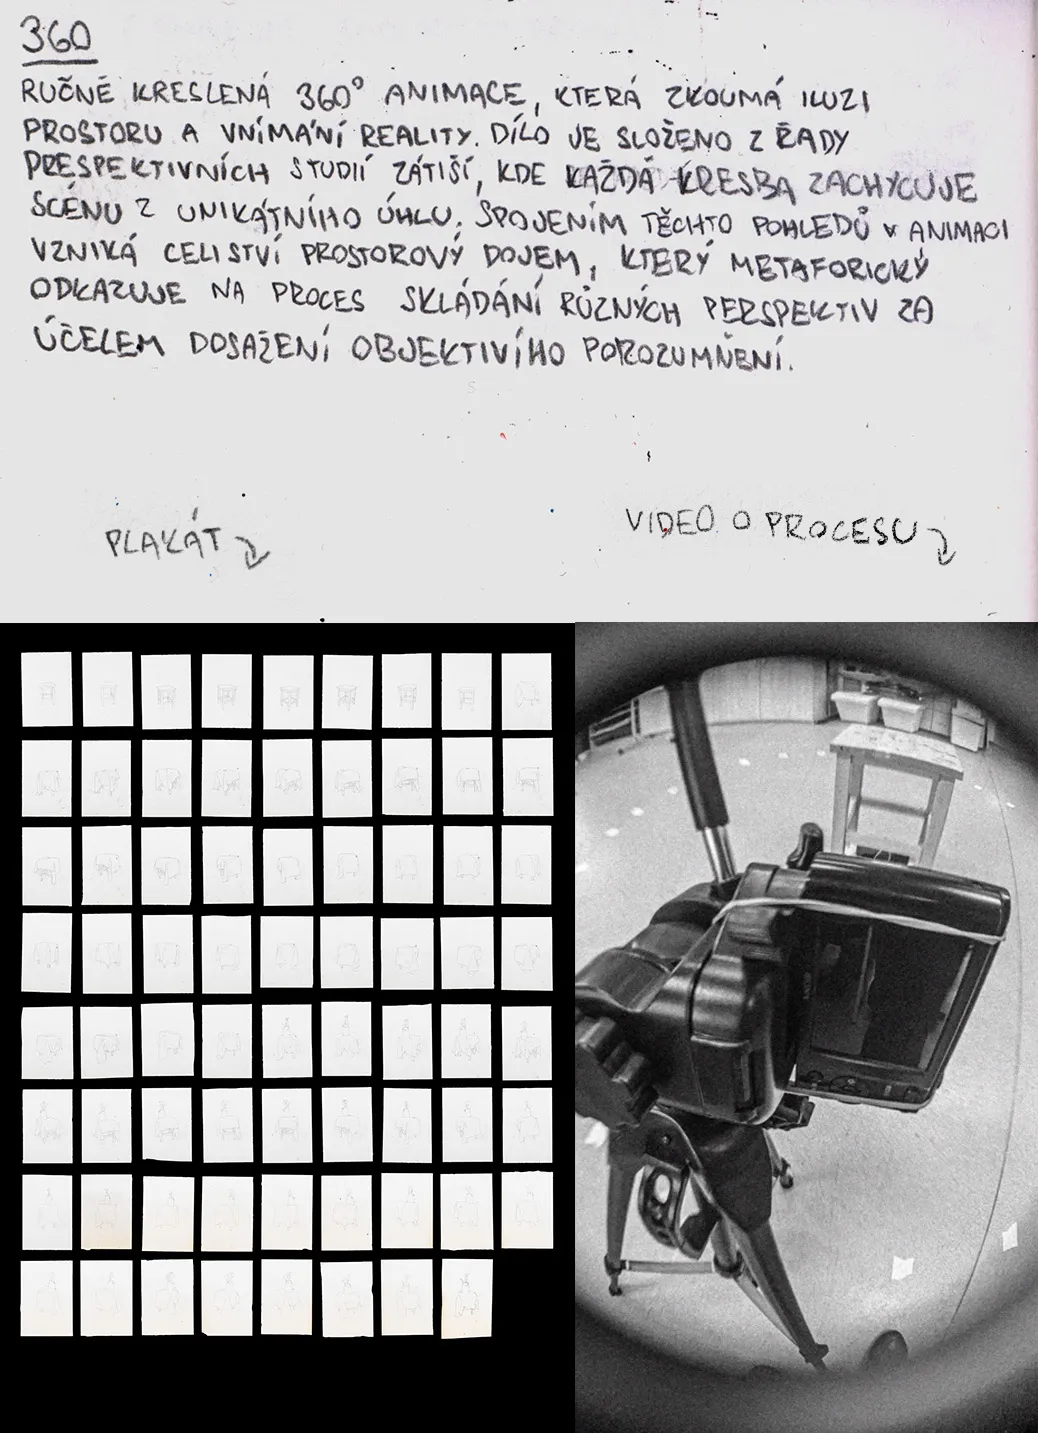 360
RUČNĚ KRESLENÁ 360° ANIMACE, KTERÁ ZKOUMÁ ILUZI
PROSTORU A VNÍMÁNÍ REALITY. DÍLO JE SLOŽENO Z ŘADY
PRESPEKTIVNÍCH STUDIÍ ZÁTIŠÍ, KDE KAŽDÁ KRESBA ZACHYCUJE
SCÉNU Z UNIKÁTNÍHO ÚHLU. SPOJENÍM TĚCHTO POHLEDŮ V ANIMACI
VZNIKÁ CELISTVÍ PROSTOROVÝ DOJEM, KTERÝ METAFORICKÝ
ODKAZUJE NA PROCES SKLÁDÁNÍ RŮZNÝCH PERSPEKTIV ZA
ÚČELEM DOSAŽENÍ OBJEKTIVÍHO POROZUMNĚNÍ.
PLAKÁT
VIDEO O PROCESU